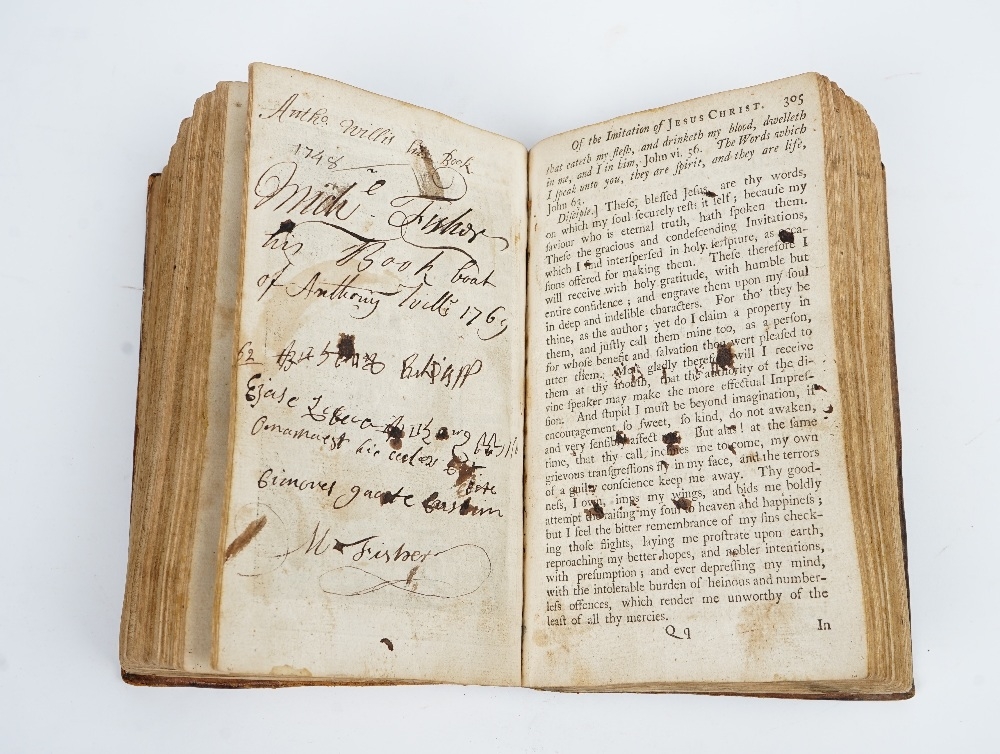 Antho Willis his Book
1748
Miche Fisher
his Book boat
of Anthony Wills 1769
Mr Fisher
Of the Imitation of JESUS CHRIST. 305
that eateth my flesh, and drinketh my blood, dwelleth
in me, and I in him, John vi. 56. The Words which
I speak unto you, they are spirit, and they are life,
John 63.
Disciple.] These, blessed Jesus, are thy words,
on which my soul securely rests it self; because my
saviour who is eternal truth, hath spoken them.
These the gracious and condescending Invitations,
which I find interspersed in holy scripture, as occa-
sions offered for making them. These therefore I
will receive with holy gratitude, with humble but
entire confidence; and engrave them upon my soul
in deep and indelible characters. For tho' they be
thine, as the author; yet do I claim a property in
them, and justly call them mine too, as a person,
for whose benefit and salvation thou wert pleased to
utter them. Most gladly therefore will I receive
them at thy mouth, that the authority of the di-
vine speaker may make the more effectual Impres-
sion. And stupid I must be beyond imagination, if
encouragement so sweet, so kind, do not awaken,
and very sensibly affect me. But alas! at the same
time, that thy call incites me to come, my own
grievous transgressions fly in my face, and the terrors
of a guilty conscience keep me away. Thy good-
ness, I own, imps my wings, and bids me boldly
attempt the raising my soul to heaven and happiness;
but I feel the bitter remembrance of my sins check-
ing those flights, laying me prostrate upon earth,
reproaching my better hopes, and nobler intentions,
with presumption; and ever depressing my mind,
with the intolerable burden of heinous and number-
less offences, which render me unworthy of the
least of all thy mercies.
Q q In